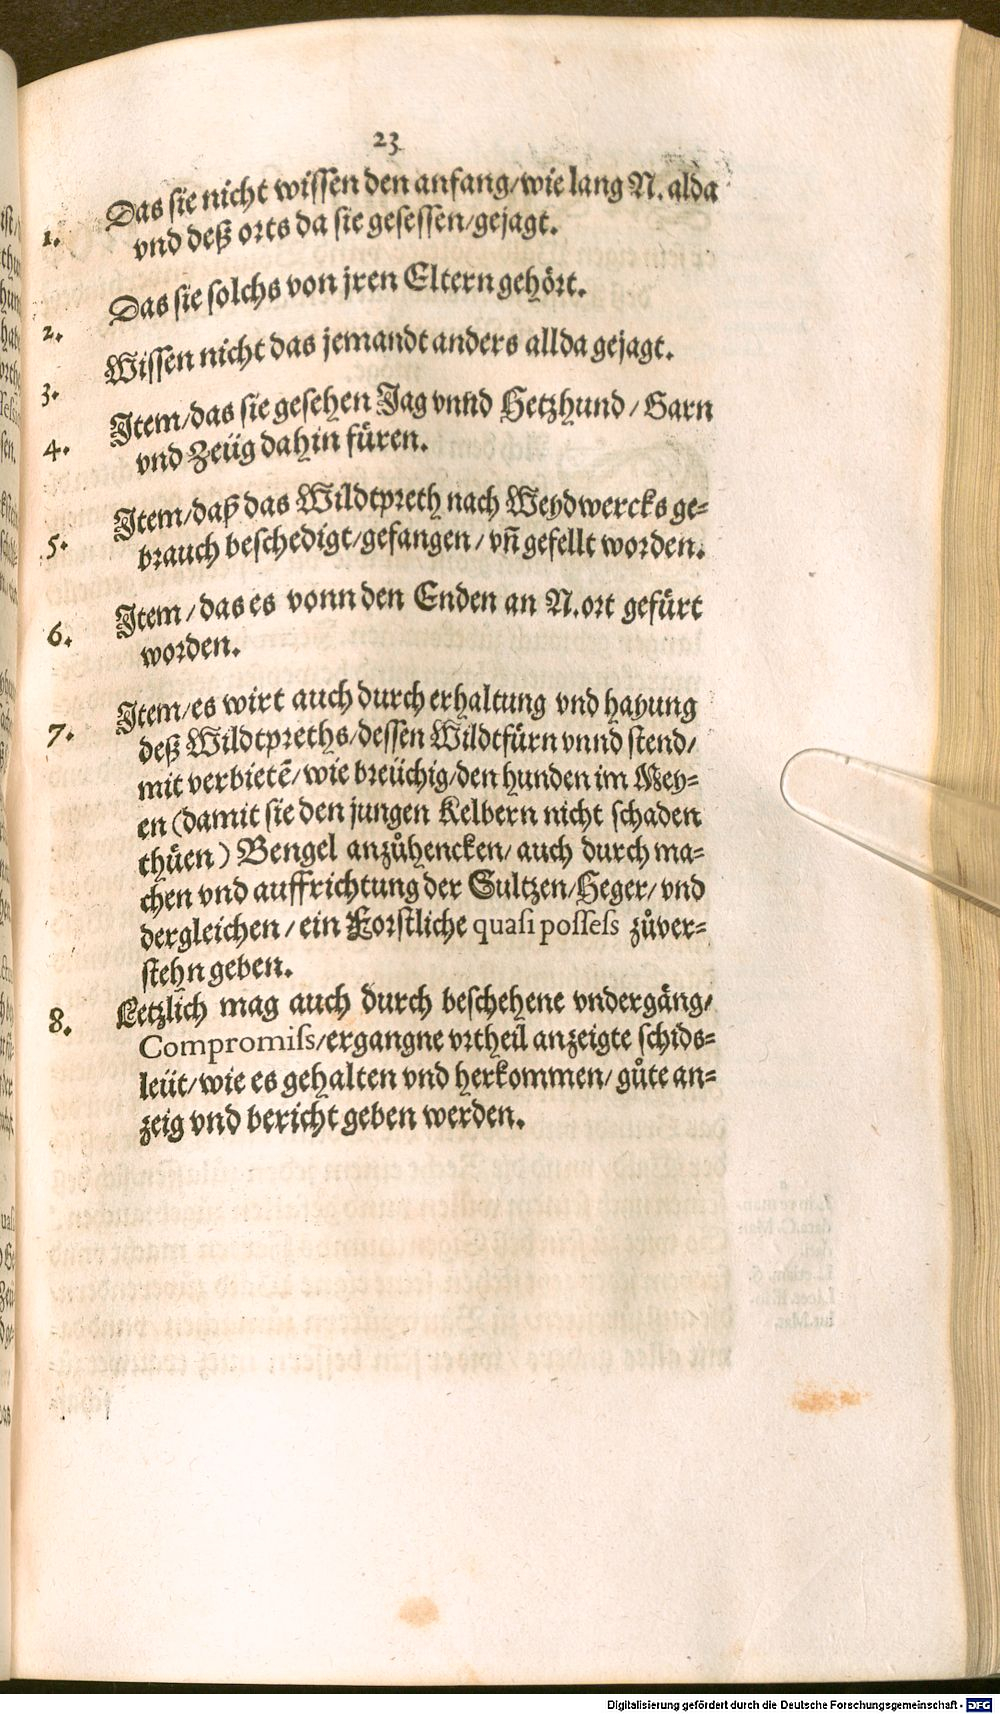 23
1. Das sie nicht wissen den anfang/wie lang N. alda
vnd deß orts da sie gesessen/gejagt.
2. Das sie solchs von jren Eltern gehört.
3. Wissen nicht das jemandt anders allda gejagt.
4. Item/das sie gesehen Jag vnnd Hetzhund/Garn
vnd Zeüg dahin füren.
5. Item/daß das Wildtpreth nach Weydwercks ge-
brauch beschedigt/gefangen/vñ gefellt worden.
6. Item/das es vonn den Enden an N. ort gefürt
worden.
7. Item/es wirt auch durch erhaltung vnd hayung
deß Wildtpreths/dessen Wildtfürn vnnd stend/
mit verbietẽ/wie breüchig/den hunden im Mey-
en (damit sie den jungen Kelbern nicht schaden
thüen) Bengel anzůhencken/auch durch ma-
chen vnd auffrichtung der Sultzen/Heger/vnd
dergleichen/ein Forstliche quasi possess zůver-
stehn geben.
8. Letzlich mag auch durch beschehene vndergäng/
Compromiss/ergangne vrtheil anzeigte schids-
leüt/wie es gehalten vnd herkommen/gůte an-
zeig vnd bericht geben werden.
Digitalisierung gefördert durch die Deutsche Forschungsgemeinschaft - DFG